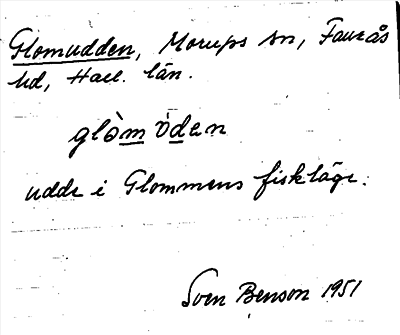 Glomudden, Morups sn, Faurås
hd, Hall. län.
glòm óden
udde i Glommens fiskläge.
Sven Benson 1951